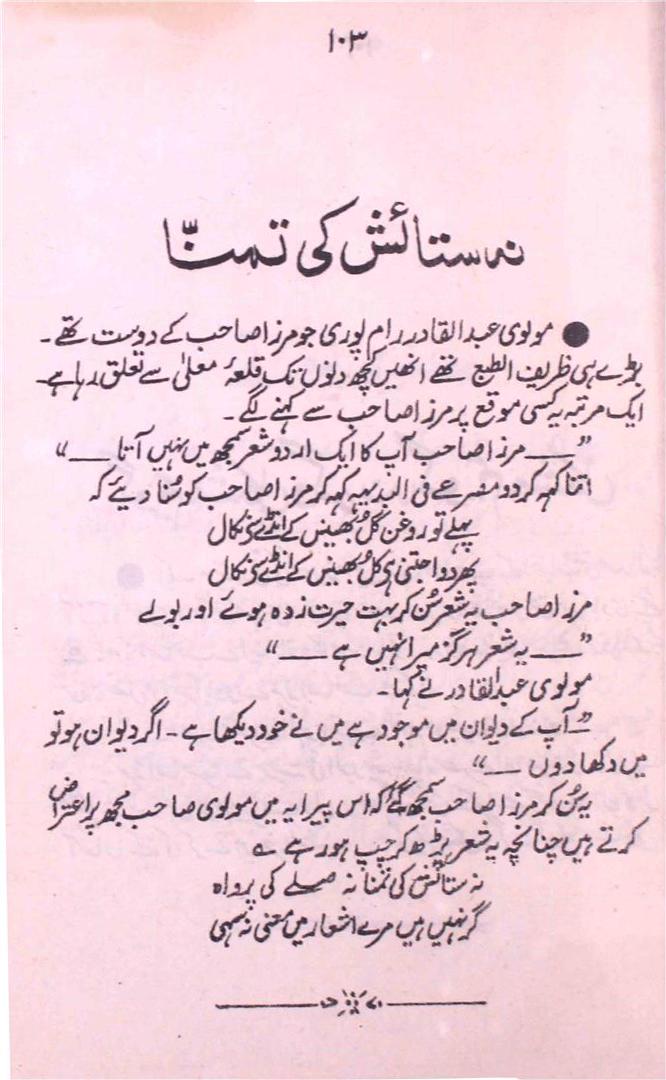 ۱۰۳
نہ ستائش کی تمنّا
● مولوی عبدالقادر رام پوری جو مرزا صاحب کے دوست تھے۔
بڑے ہی ظریف الطبع تھے انھیں کچھ دنوں تک قلعۂ معلیٰ سے تعلق رہا ہے۔
ایک مرتبہ یہ کسی موقع پر مرزا صاحب سے کہنے لگے۔
”—— مرزا صاحب آپ کا ایک اردو شعر سمجھ میں نہیں آتا ——“
اتنا کہہ کر دو مصرعے فی البدیہہ کہہ کر مرزا صاحب کو سُنا دیئے کہ
پہلے تو روغن گل بھینس کے انڈے سے نکال
پھر دوا جتنی ہے کل بھینس کے انڈے سے نکال
مرزا صاحب یہ شعر سُن کر بہت حیرت زدہ ہوئے اور بولے
”—— یہ شعر ہرگز میرا نہیں ہے ——“
مولوی عبدالقادر نے کہا۔
”— آپ کے دیوان میں موجود ہے میں نے خود دیکھا ہے۔ اگر دیوان ہو تو
میں دکھا دوں ——“
یہ سُن کر مرزا صاحب سمجھ گئے کہ اس پیرایہ میں مولوی صاحب مجھ پر اعتراض
کرتے ہیں چنانچہ یہ شعر پڑھ کر چپ ہو رہے ؎
نہ ستائش کی تمنا نہ صلے کی پرواہ
گر نہیں ہیں مرے اشعار میں معنی نہ سہی